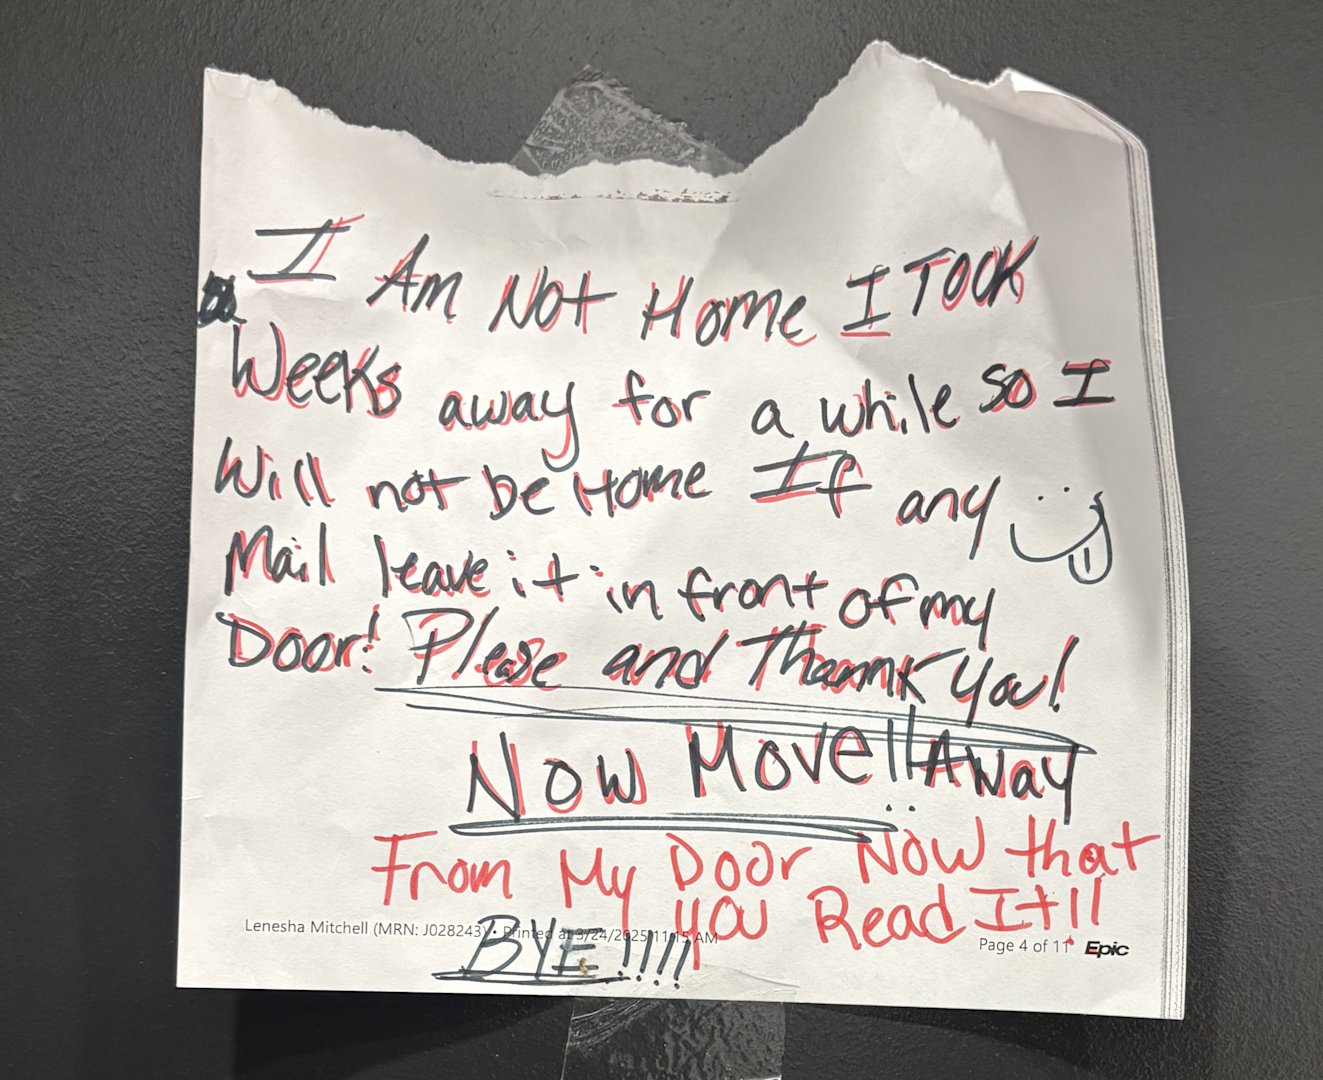 I Am Not Home I TOOK
Weeks away for a while so I
Will not be Home If any
Mail leave it in front of my
Door! Please and Thannk You!
Now Move!! Away
From My Door Now that
you Read It!!
Lenesha Mitchell (MRN: J028243) • Printed at 3/24/2025 11:15 AM
Page 4 of 11 Epic
BYE!!!!